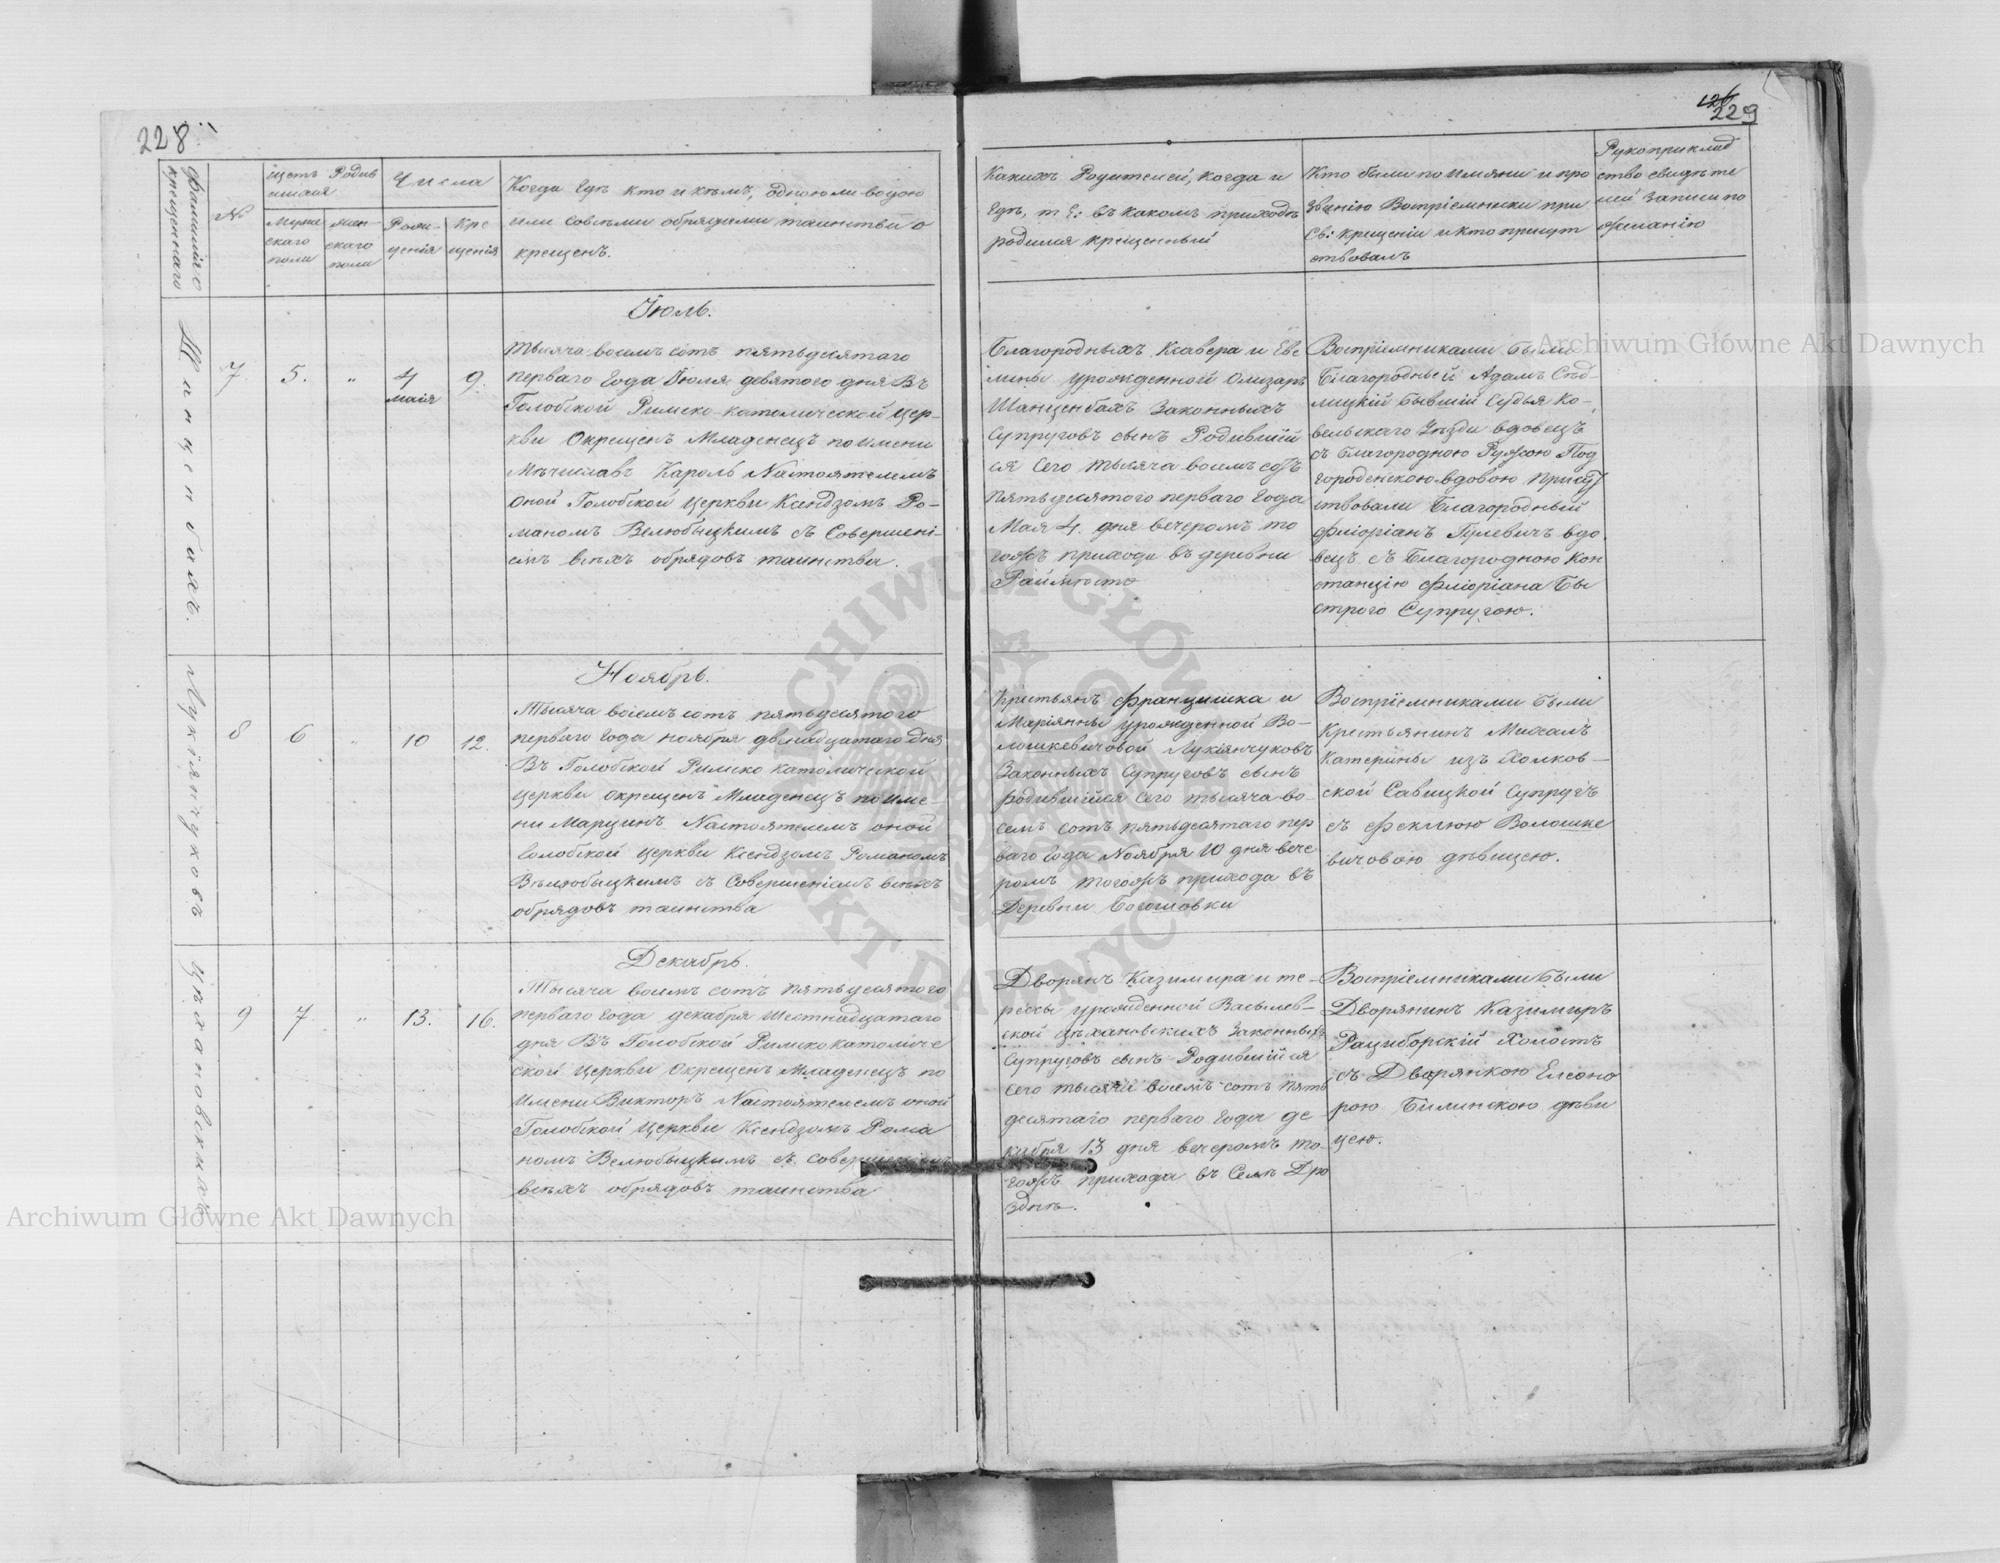 228
Фамилія
крещеннаго
№
Счетъ Родив
шихся
Муже
скаго
пола
Жен
скаго
пола
Числа
Рож-
денія
Кре
щенія
Когда Гдѣ кто и кѣмъ, одною ли водою
или совсѣми обрядами таинствъ о
крещенъ.
Іюль.
Шанценбахъ.
7
5.
"
4
маія
9.
Тысяча восемъ сотъ пятьдесятаго
перваго Года Іюля девятого дня Въ
Голобской Римско-католической Цер-
кви Окрещенъ Младенецъ по имени
Мѣчиславъ Кароль Настоятелемъ
оной Голобской Церкви Ксендзомъ Ро-
маномъ Велюбыцкимъ съ Совершені-
емъ всѣхъ обрядовъ таинства.
Ноябрь.
Лукіянчуковъ
8
6
"
10
12.
Тысяча восемъ сотъ пятьдесятого
перваго Года ноября двенадцатаго дня
Въ Голобской Римско католической
Церкви окрещенъ Младенецъ по име-
ни Марцинъ Настоятелемъ оной
Голобской Церкви Ксендзомъ Романомъ
Велюбыцкимъ съ Совершеніемъ всѣхъ
обрядовъ таинства
Декабрь.
Цѣхановскихъ
9
7
"
13.
16.
Тысяча восемъ сотъ пятьдесятого
перваго Года декабря Шестнадцатаго
дня Въ Голобской Римскокатоличе
ской Церкви Окрещенъ Младенецъ по
имени Викторъ Настоятелемъ оной
Голобской Церкви Ксендзомъ Рома
номъ Велюбыцкимъ съ совершеніемъ
всѣхъ обрядовъ таинства
229
Какихъ Родителей, когда и
Гдѣ, т. е: въ какомъ приходѣ
родился крещенный
Кто были по имяни и про
званію Воспріемники при
Св: крещеніи и кто присут
ствовалъ
Рукоприклад
ство свидѣте
лей записи по
желанію
Благородныхъ Ксавера и Еве
лины урожденной Олизаръ
Шанценбахъ Законныхъ
Супруговъ сынъ Родившій
ся Сего тысяча восемъ сотъ
пятьдесятого перваго Года
Мая 4. дня вечеромъ то
гожъ прихода въ деревни
Раймѣсто
Воспріемниками были
Благородный Адамъ Сѣд-
лицкій бывшій Судья Ко-
вельскаго Уѣзда вдовецъ
съ благородною Рузею Под
городенскою вдовою присут
ствовали Благородный
Флоріанъ Гулевичъ вдо
вецъ съ Благородною Кон
станцію Флоріана Бы
строго Супругою.
Крестьянъ Францишка и
Маріянны урожденной Во-
лошкевичовой Лукіянчуковъ
Законныхъ Супруговъ сынъ
родившійся Сего тысяча во-
семъ сотъ пятьдесятаго пер
ваго Года Ноября 10 дня вече
ромъ тогожъ прихода въ
Деревни Богошовки
Воспріемниками были
Крестьянинъ Михалъ
Катерины изъ Холков-
ской Савицкой супругъ
съ Феклюю Волошке
вичовою дѣвицею.
Дворянъ Казимира и Те-
ресы урожденной Васылев-
ской Цѣхановскихъ Законныхъ
Супруговъ сынъ Родившійся
Сего тысячи восемъ сотъ пять
десятаго перваго Года де
кабря 13 дня вечеромъ то-
гожъ прихода въ Селѣ Дро
зднѣ.
Воспріемниками были
Дворянинъ Казимиръ
Рациборскій Холостъ
съ Дворянкою Елеоно
рою Билинскою дѣви
цею.
Archiwum Główne Akt Dawnych
ARCHIWUM GŁÓWNE AKT DAWNYCH
Archiwum Główne Akt Dawnych